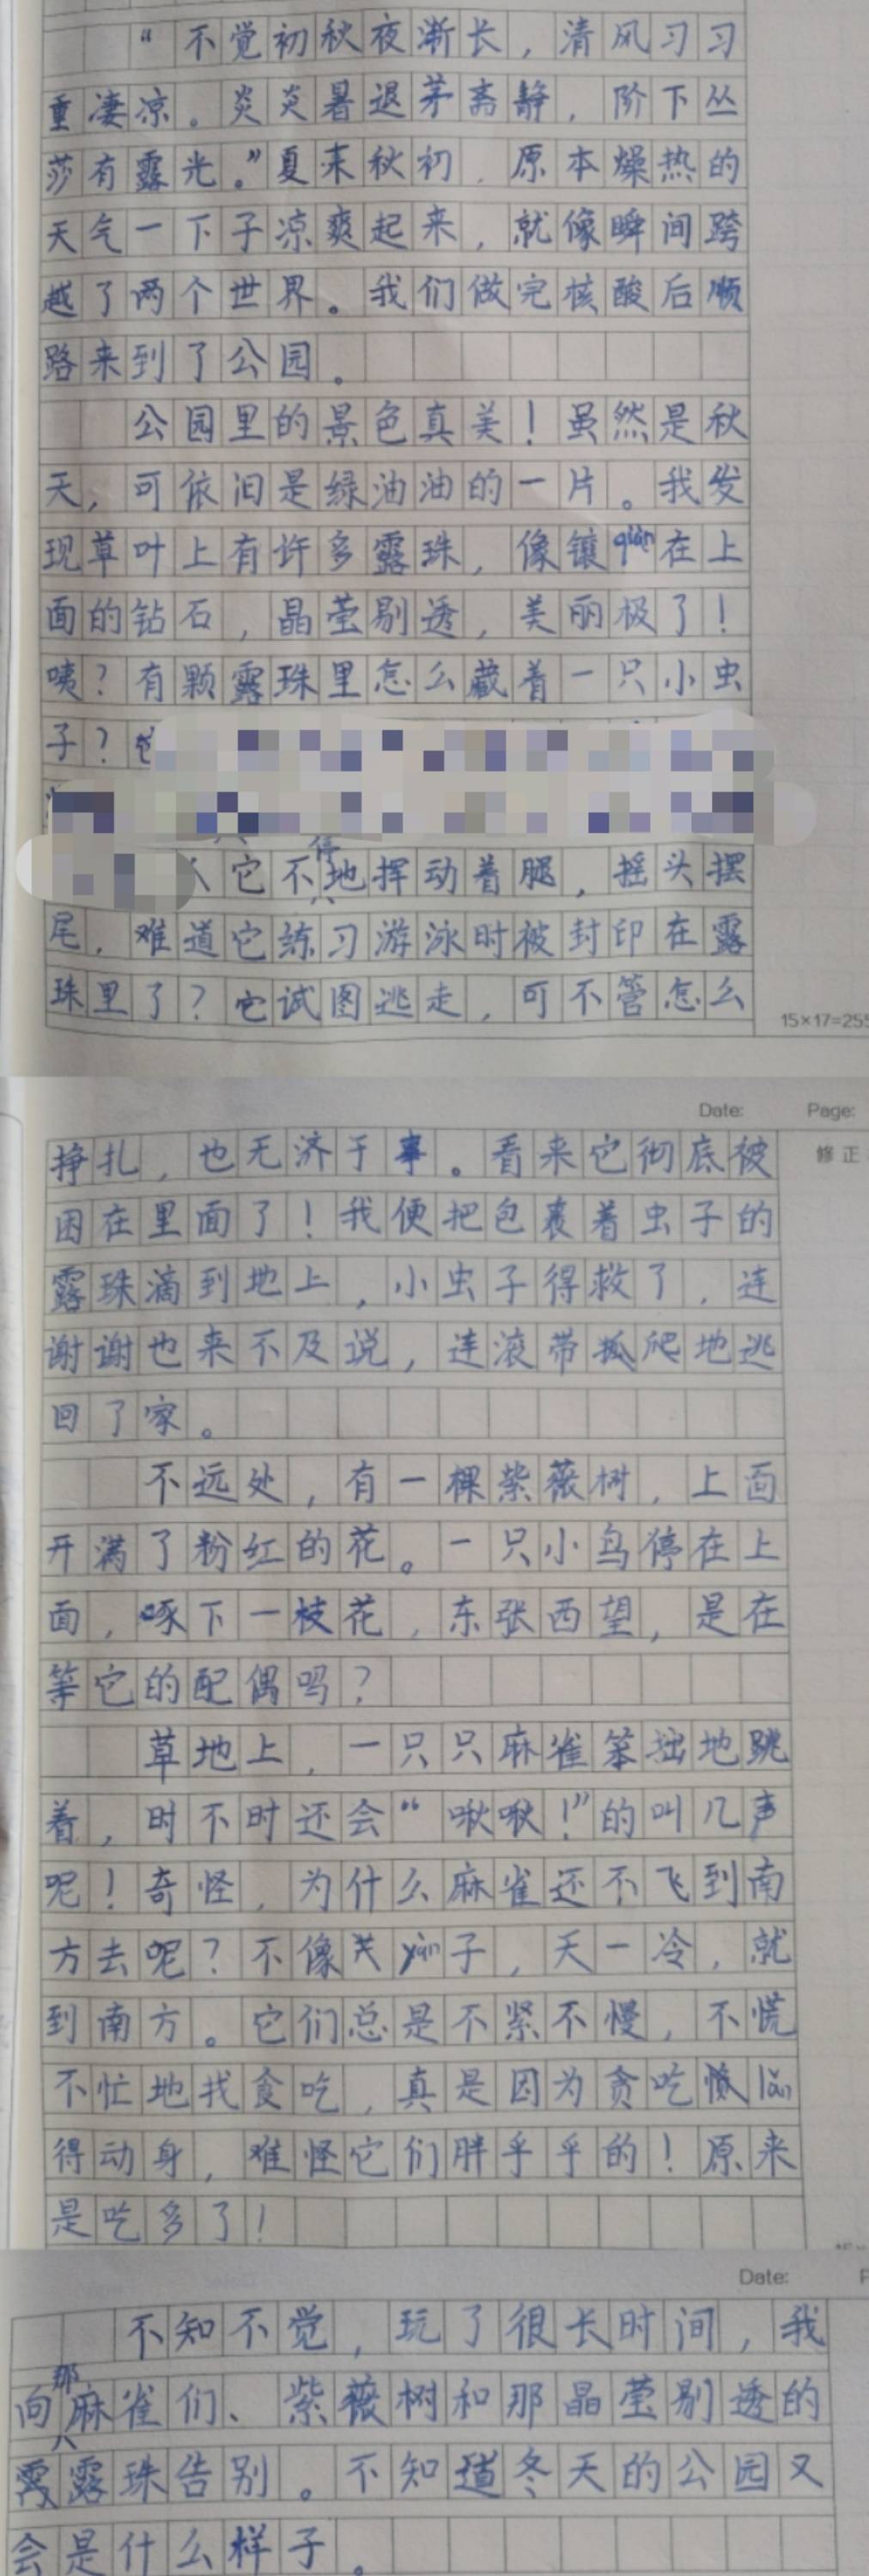 “不觉初秋夜渐长，清风习习
重凄凉。炎炎暑退茅斋静，阶下丛
莎有露光。”夏末秋初，原本燥热的
天气一下子凉爽起来，就像瞬间跨
越了两个世界。我们做完核酸后顺
路来到了公园。
公园里的景色真美！虽然是秋
天，可依旧是绿油油的一片。我发
现草叶上有许多露珠，像镶qiàn在上
面的钻石，晶莹剔透，美丽极了！
咦？有颗露珠里怎么藏着一只小虫
子？
它不停地挥动着腿，摇头摆
尾，难道它练习游泳时被封印在露
珠里了？它试图逃走，可不管怎么
15×17=255
Date: Page:
挣扎，也无济于事。看来它彻底被
修正
困在里面了！我便把包裹着虫子的
露珠滴到地上，小虫子得救了，连
谢谢也来不及说，连滚带爬地逃
回了家。
不远处，有一棵紫薇树，上面
开满了粉红的花。一只小鸟停在上
面，啄下一枝花，东张西望，是在
等它的配偶吗？
草地上，一只只麻雀笨拙地跳
着，时不时还会“啾啾！”的叫几声
呢！奇怪，为什么麻雀还不飞到南
方去呢？不像yàn子，天一冷，就
到南方。它们总是不紧不慢，不慌
不忙地找食吃，真是因为贪吃lǎn
得动身，难怪它们胖乎乎的！原来
是吃多了！
Date:
不知不觉，玩了很长时间，我
向那麻雀们、紫薇树和那晶莹剔透的
露珠告别。不知道冬天的公园又
会是什么样子。